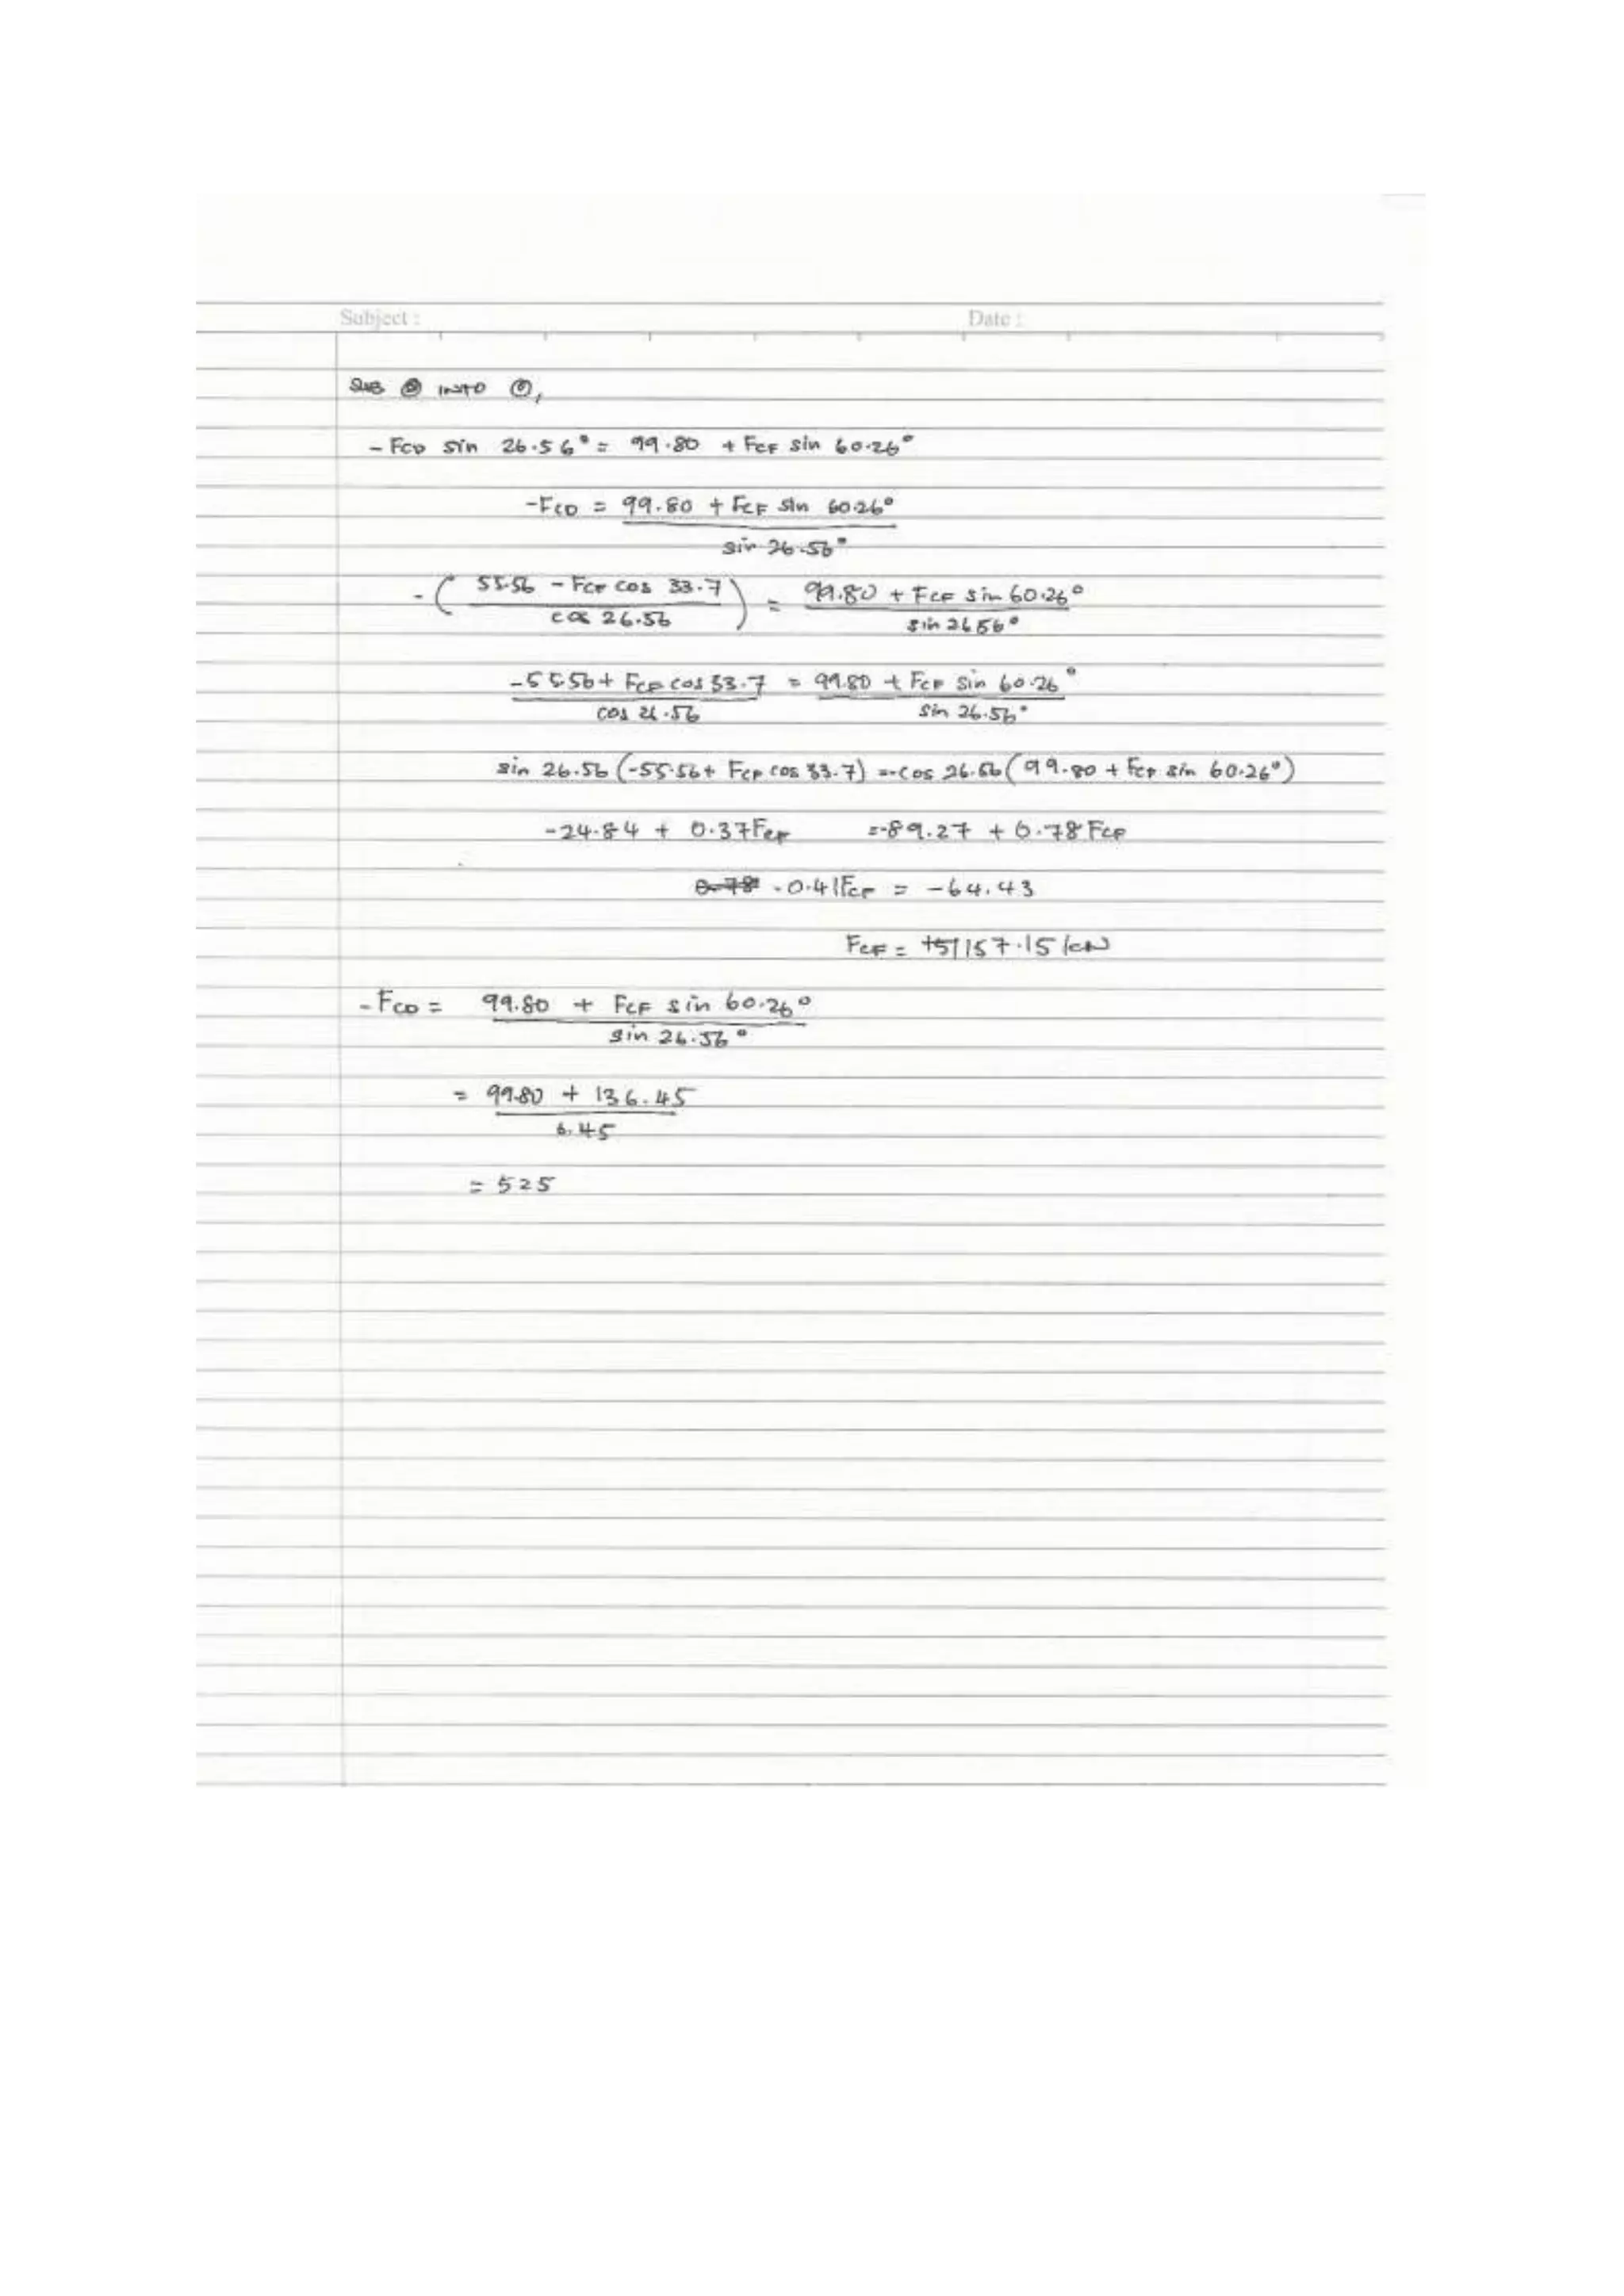 Subject : Date :
SUB ② INTO ①,
- FCD sin 26.56° = 99.80 + FCF sin 60.26°
-FCD = 99.80 + FCF sin 60.26°
sin 26.56°
-( 55.56 - FCF cos 33.7 ) = 99.80 + FCF sin 60.26°
cos 26.56 sin 26.56°
-55.56 + FCF cos 33.7 = 99.80 + FCF sin 60.26°
cos 26.56 sin 26.56°
sin 26.56 (-55.56 + FCF cos 33.7) =-cos 26.56 (99.80 + FCF sin 60.26°)
-24.84 + 0.37FCF =-89.27 + 0.78 FCF
-0.41FCF = -64.43
FCF = 157.15 kN
-FCD = 99.80 + FCF sin 60.26°
sin 26.56°
= 99.80 + 136.45
0.45
= 525